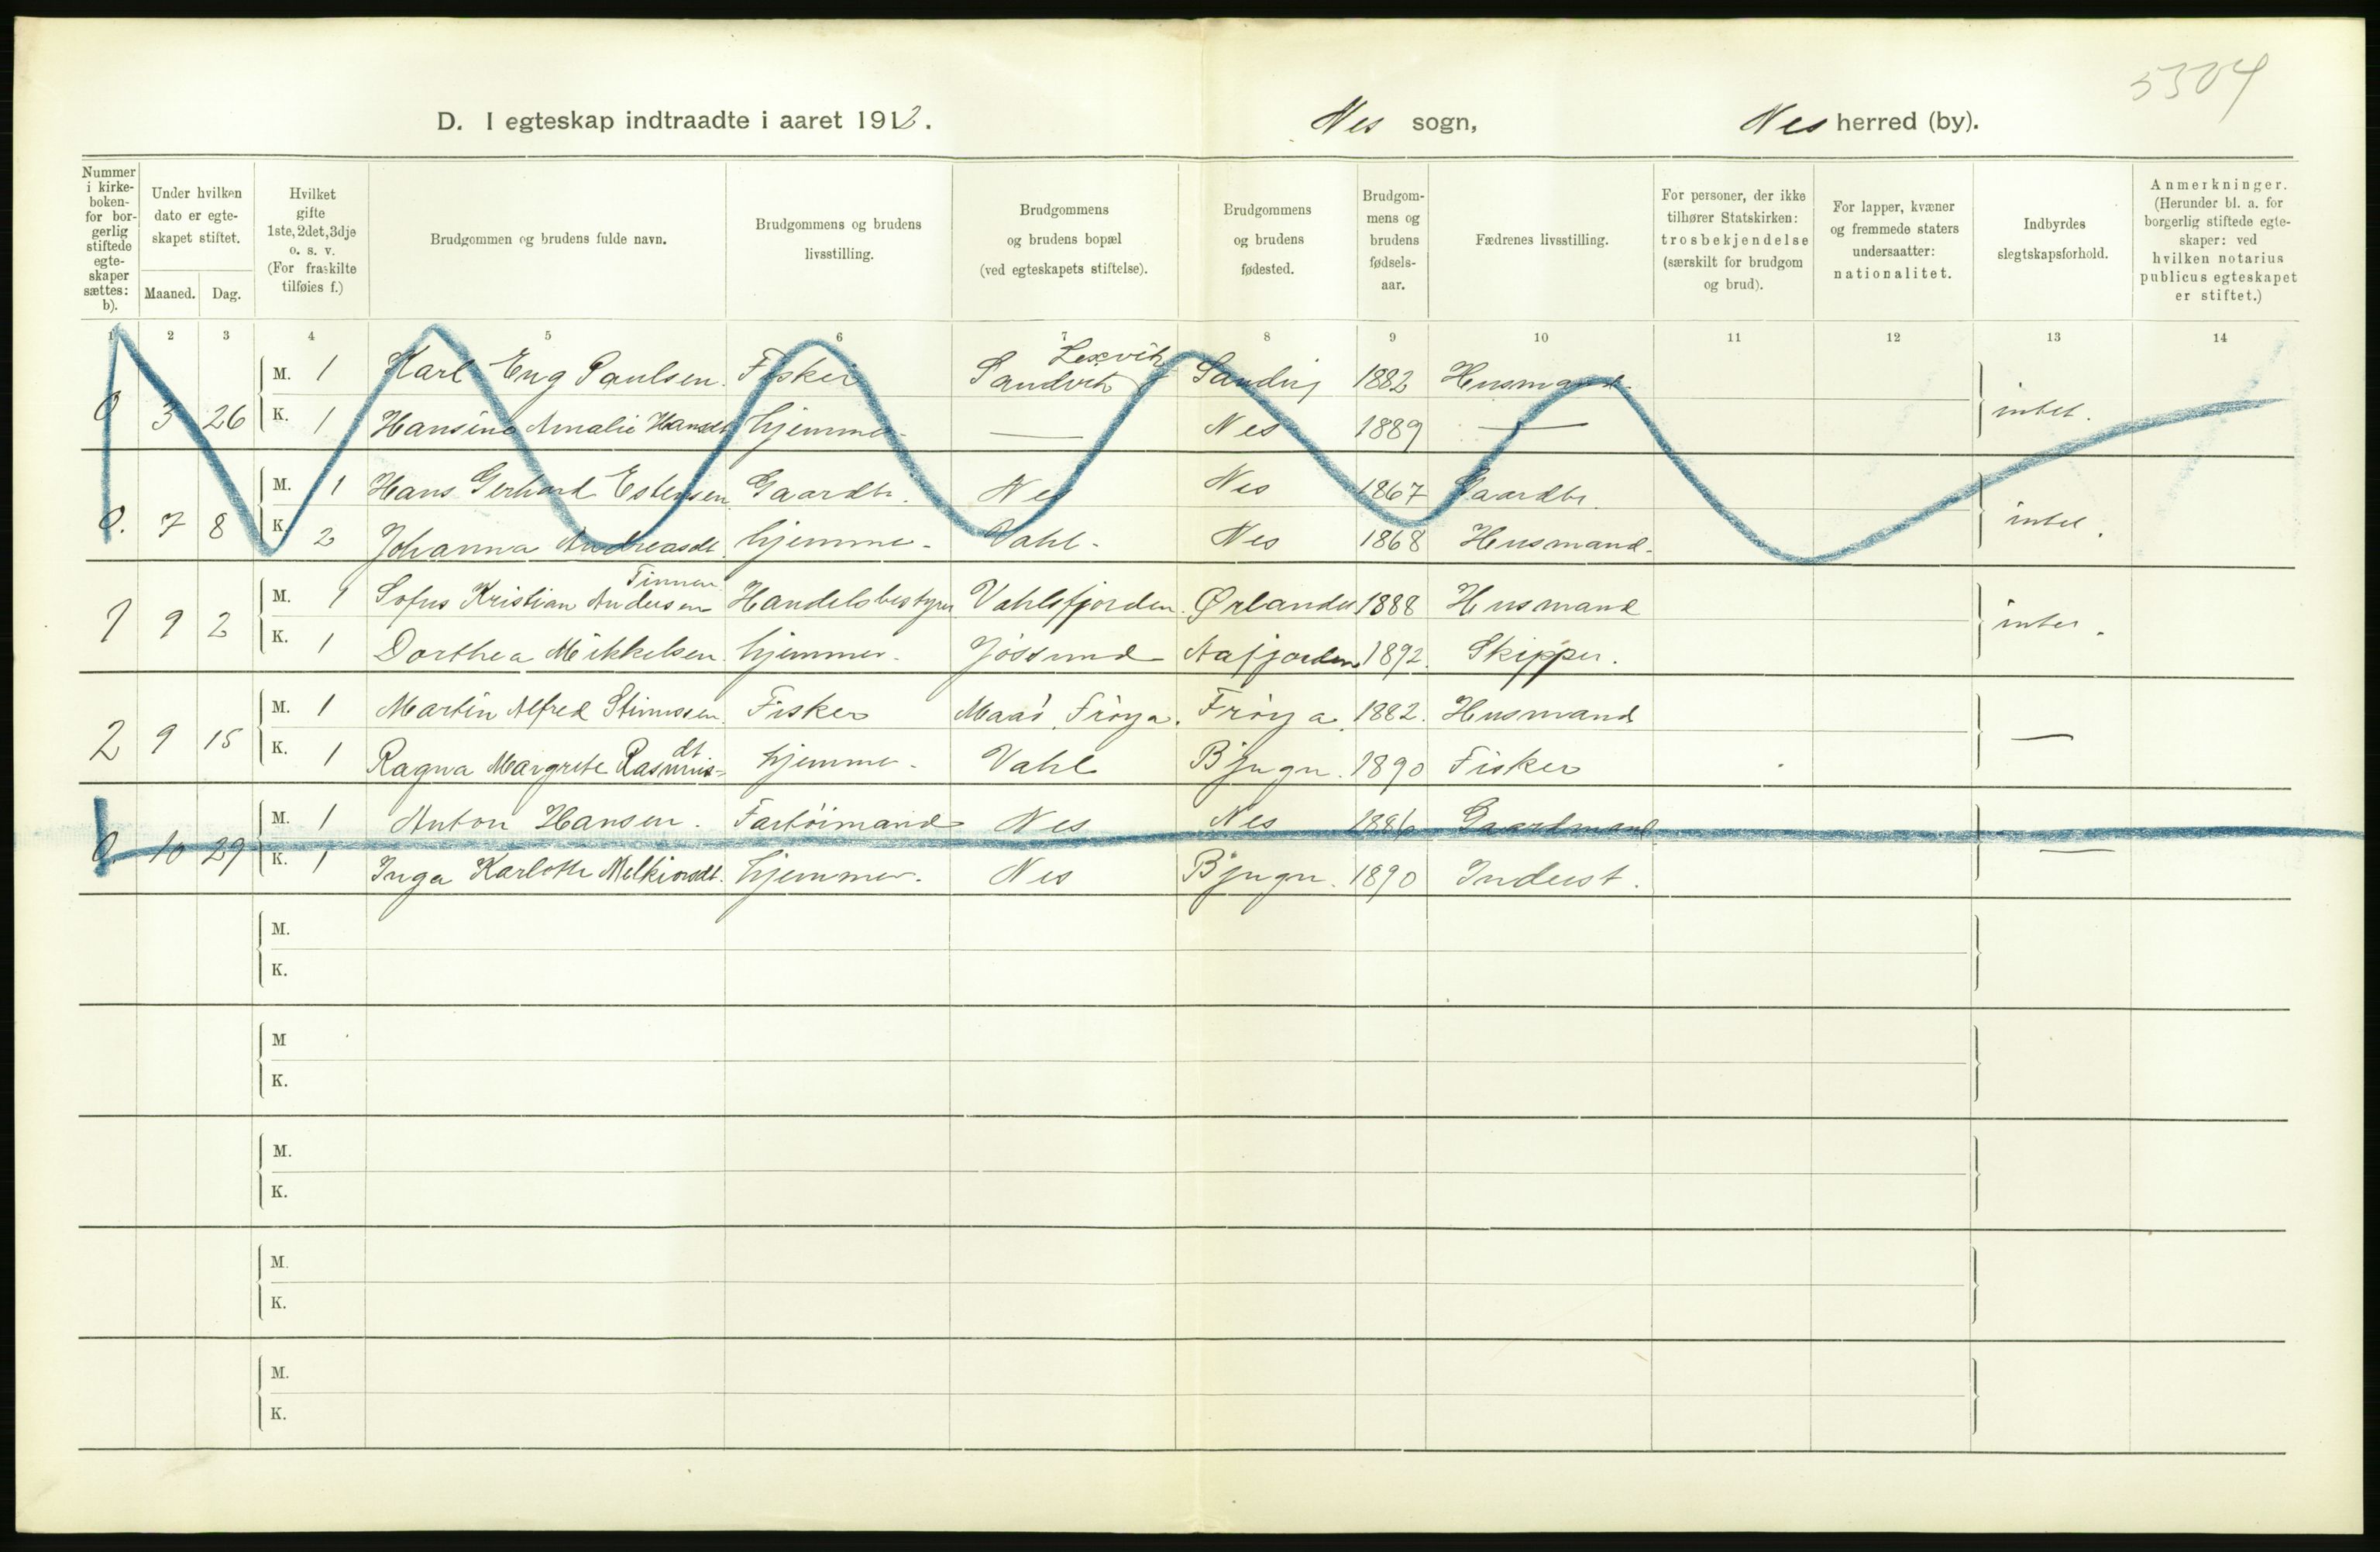 5304
D. I egteskap indtraadte i aaret 1912.
Nes sogn, Nes herred (by).
Nummer i kirke-boken- for bor-gerlig stiftede egte-skaper sættes: b).
Under hvilken dato er egte-skapet stiftet.
Maaned. Dag.
Hvilket gifte 1ste, 2det, 3dje o. s. v. (For fraskilte tilføies f.)
Brudgommen og brudens fulde navn.
Brudgommens og brudens livsstilling.
Brudgommens og brudens bopæl (ved egteskapets stiftelse).
Brudgommens og brudens fødested.
Brudgom-mens og brudens fødsels-aar.
Fædrenes livsstilling.
For personer, der ikke tilhører Statskirken: trosbekjendelse (særskilt for brudgom og brud).
For lapper, kvæner og fremmede staters undersaatter: nationalitet.
Indbyrdes slegtskapsforhold.
Anmerkninger. (Herunder bl. a. for borgerlig stiftede egte-skaper: ved hvilken notarius publicus egteskapet er stiftet.)
1 2 3 4 5 6 7 8 9 10 11 12 13 14
Lexvik
M. 1 Karl Eng Paulsen. Fisker Sandvik Sandvig 1882 Husmand
0 3 26 intet.
K. 1 Hansine Amalie Hansdt hjemme — Nes 1889 —
M. 1 Hans Gerhard Estensen Gaardbr. Nes Nes 1867 Gaardbr.
0. 7 8 intet.
K. 2 Johanna Andreasdt. hjemme Vahl Nes 1868 Husmand
M. 1 Sofus Kristian Andersen Handelsbestyrer Vahlsfjorden. Ørlandet 1888 Husmand
1 9 2 intet.
K. 1 Dorthea Mikkelsen. hjemme Jøssund Aafjorden 1892. Skipper.
M. 1 Martin Alfred Fisker Frøya. Frøya 1882. Husmand
2 9 15 —
K. 1 Ragna Margrete Rasmus-dt hjemme Vahl Bjugn. 1890 Fisker
M. 1 Anton Hansen. Fartøimand Nes Nes 1886 Gaardmand
0 10 29 —
K. 1 Inga Karlotte Melkiorsdt. hjemme. Nes Bjugn. 1890 Inderst.
M.
K.
M
K.
M.
K.
M.
K.
M.
K.